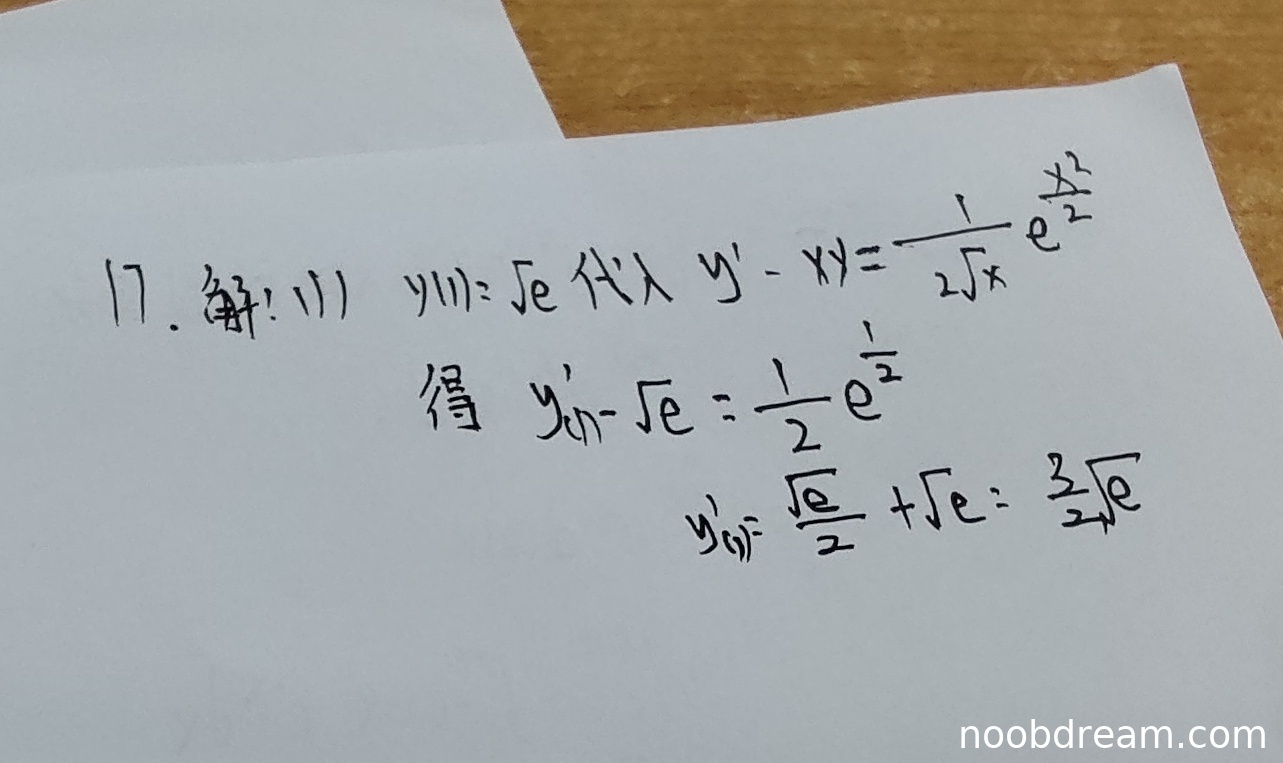 17. 解: (1) y(1)=√e 代入 y' - xy = \frac{1}{2\sqrt{x}} e^{\frac{x^2}{2}}
得 y'(1) - √e = \frac{1}{2} e^{\frac{1}{2}}
y'(1) = \frac{\sqrt{e}}{2} + √e = \frac{3}{2}√e
noobdream.com